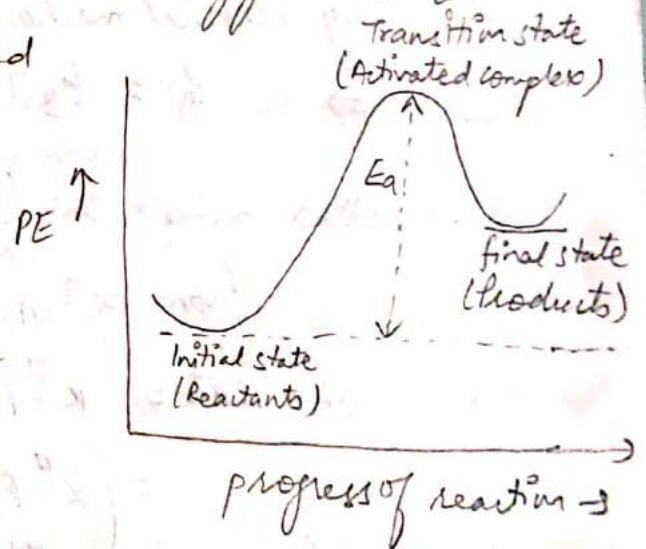 d
Transition state
(Activated complex)
Ea
PE ↑
final state
(Products)
Initial state
(Reactants)
progress of reaction →